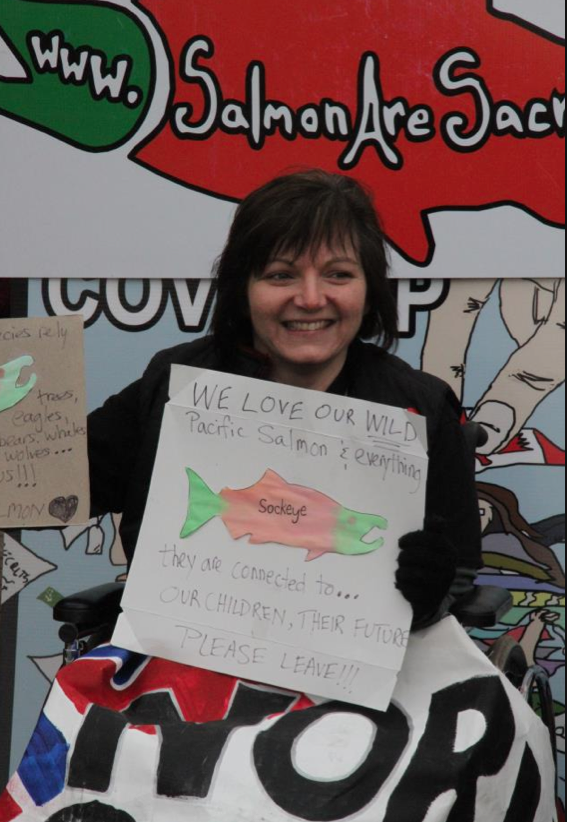 www.
SalmonAreSacr
COV
P
ecies rely
trees,
eagles,
bears, whales
wolves...
us!!!
LMON
WE LOVE OUR WILD
Pacific Salmon & everything
Sockeye
they are connected to...
OUR CHILDREN, THEIR FUTURE
PLEASE LEAVE!!!
NOR